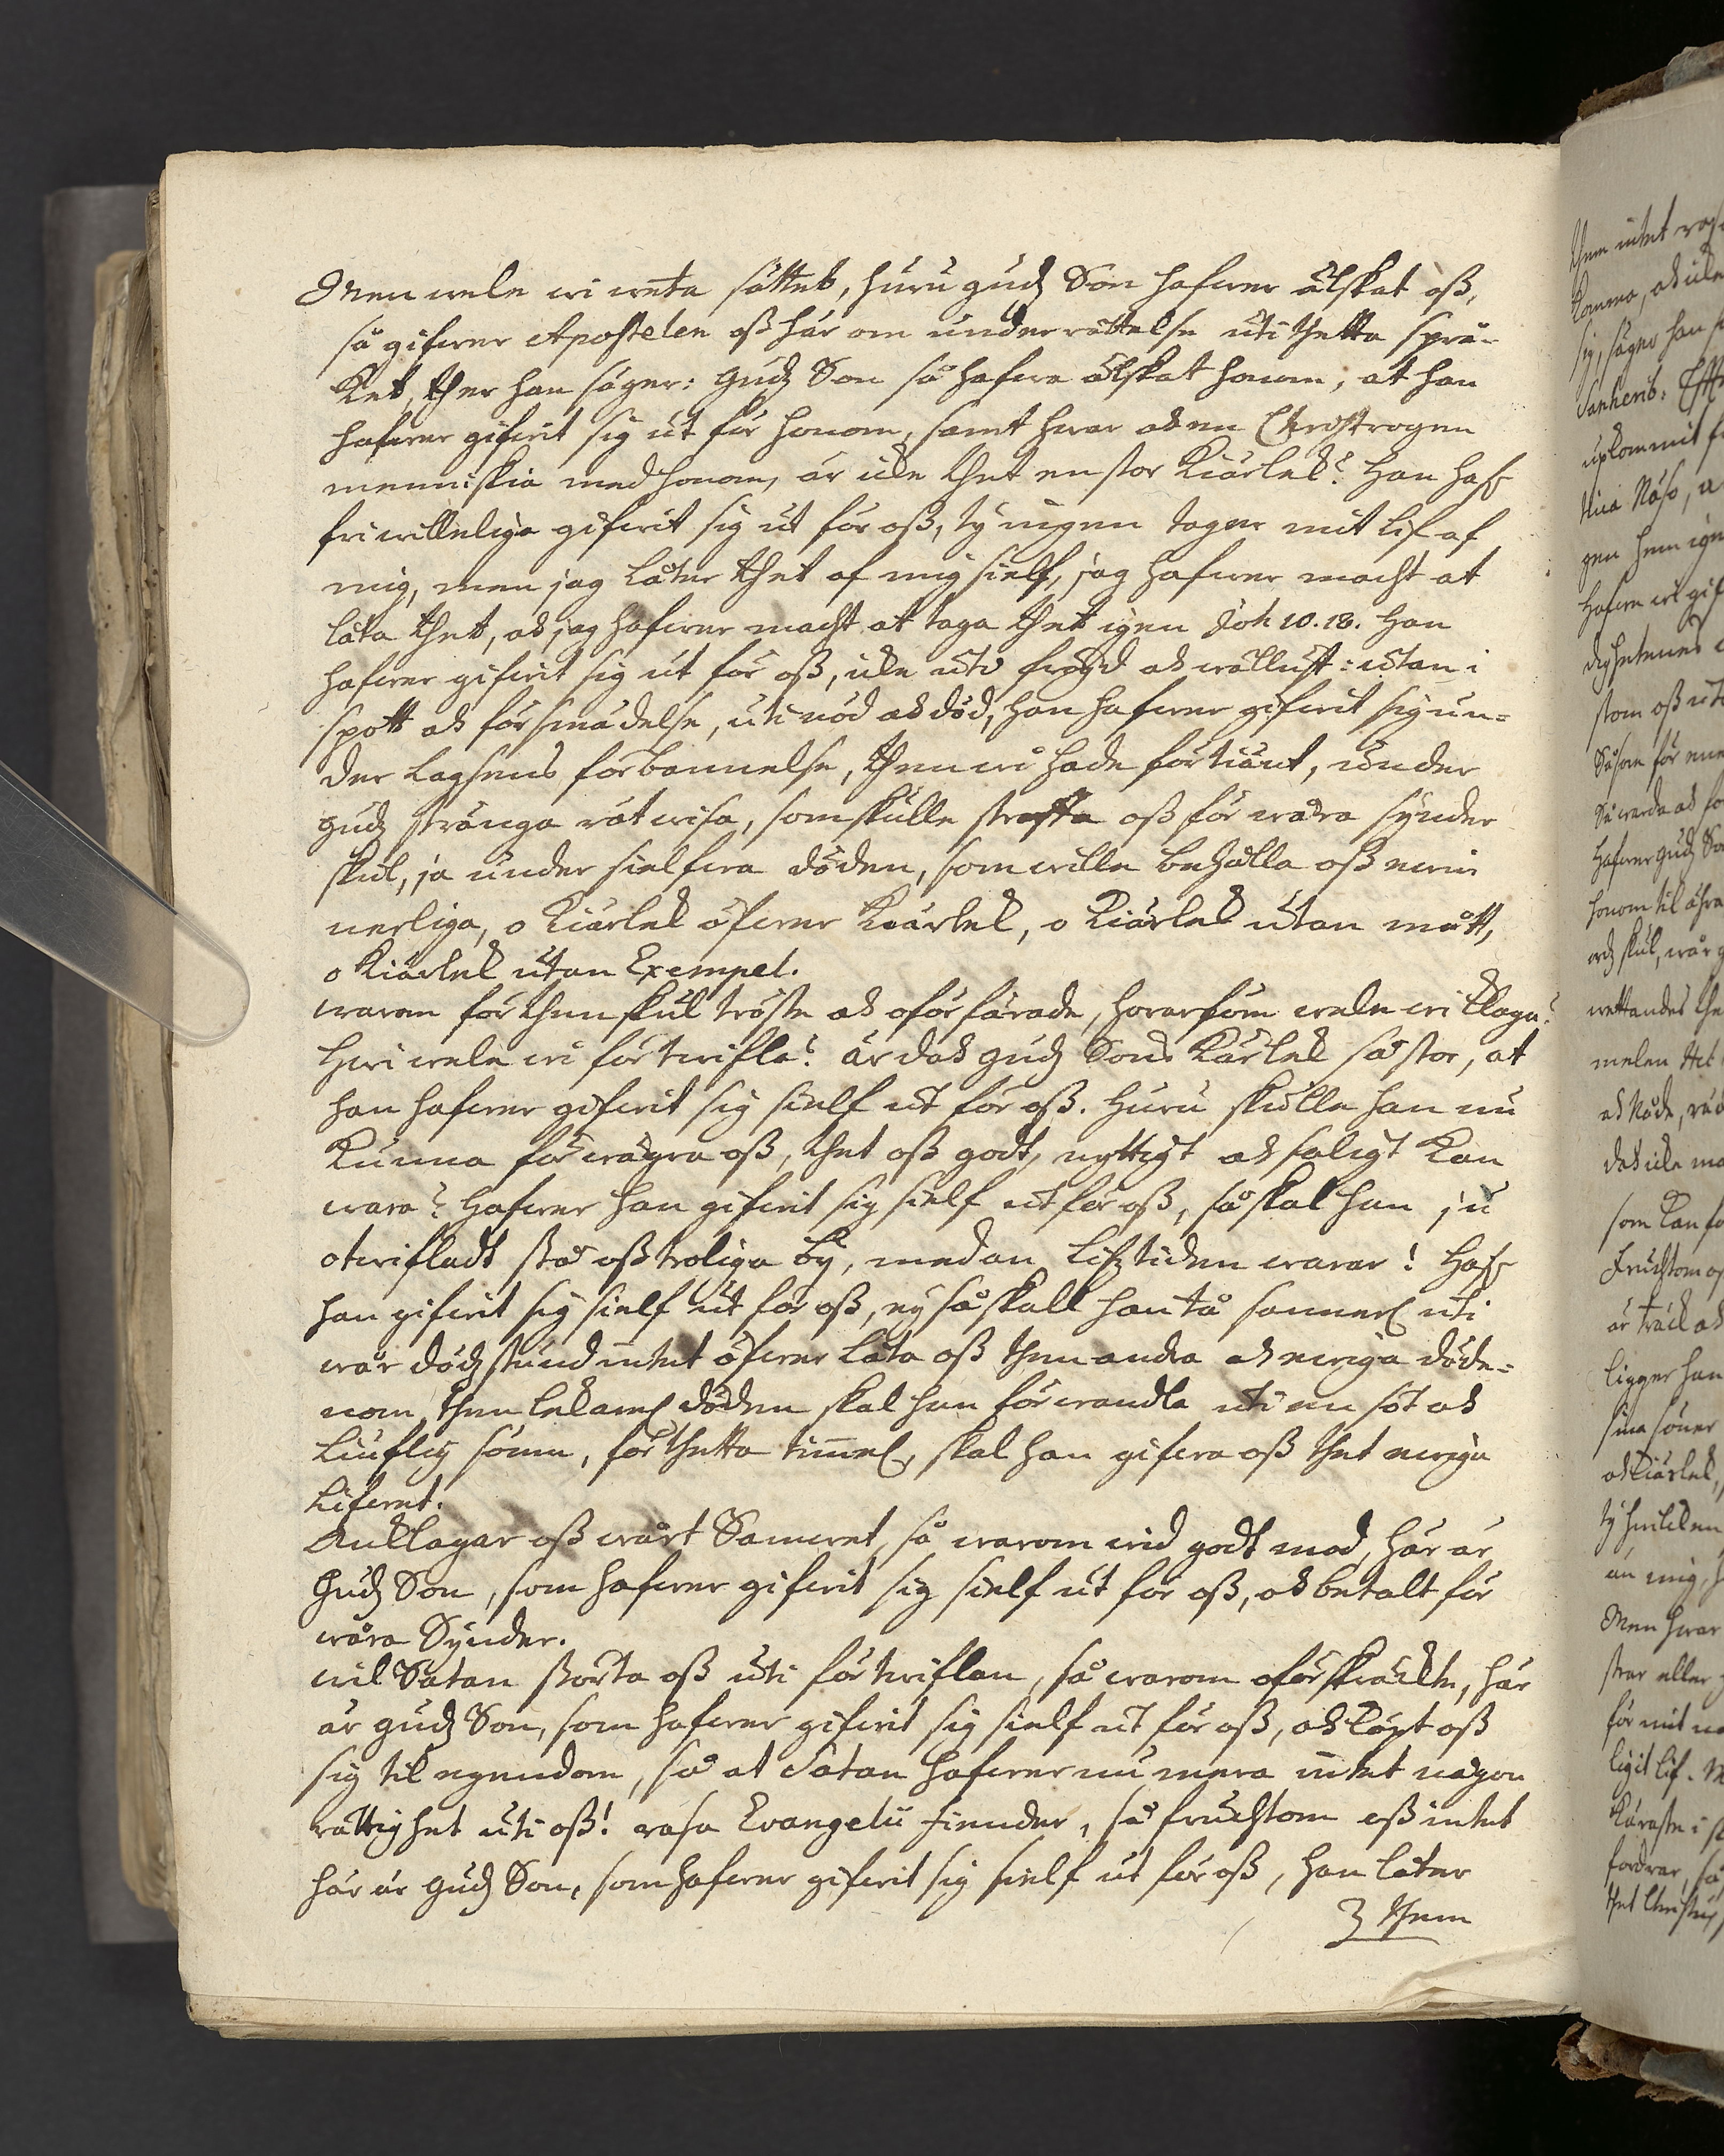 Men wele wi weta sättet, huru gudz Son hafwer älskat oß,
så gifwer Apostelen oß här om underrättelse uti thetta språ-
ket, ther han säger: gudz Son så hafwa älskat honom, at han
hafwer gifwit sig ut för honom, samt hwar ok en Christrogen
menniskia med honom, är icke thet en stor kiärlek? Han haf:r
friwilleliga gifwit sig ut för oß, ty ingen tager mit lif af
mig, men jag låter thet af mig sielf, jag hafwer macht at
låta thet, ok jag hafwer macht at taga thet igen Joh 10.18. Han
hafwer gifwit sig ut för oß, icke uti frögd ok wällust: utan i
spott ok försmädelse, uti nöd ok död, han hafwer gifwit sig un-
der Lagsens förbannelse, then wi hade förtiänt, under
gudz stränga rätwisa, som skulle straffa oß för wåra synder
skul, ja under sielfwa döden, som wille behålla oß ewin
nerliga, o kiärlek öfwer kiärlek, o kiärlek utan mått,
o kiärlek utan Exempel.
warom för then skul tröste ok oförfärade, hwarföre wele wi klaga?
Hwi wele wi förtwifla? är dok gudz Sons kärlek så stor, at
han hafwer gifwit sig sielf ut för oß. Huru skulle han nu
kunna förwägra oß, thet oß godt, nyttigt ok saligt kan
wara? Hafwer han gifwit sig sielf ut för oß, så skal han ju
otwifladt stå oß troliga by, medan lifztiden warar! Haf:r
han gifwit sig sielf ut för oß, ey så skall han tå sannerl: uti
wår dödzstund intet öfwer låta oß then andra ok ewiga döde-
nom, then lekaml: döden skal han förwandla uti en söt ok
liuflig sömn, för thetta timmel:, skal han gifwa oß thet ewiga
lifwet.
Anklagar oß wårt Samwet, så warom wid godt mod, här är
Gudz Son, som hafwer gifwit sig sielf ut för oß, ok betalt för
wåra Synder.
wil Satan störta oß uti förtwiflan, så warom oförskräckte, här
är gudz Son, som hafwer gifwit sig sielf ut för oß, ok köpt oß
sig til egendom, så at Satan hafwer nu mera intet någon
rättighet uti oß! rasa Evangelii fiender, så fruchtom oß intet
här är gudz Son, som hafwer gifwit sig sielf ut för oß, han låter
3 them